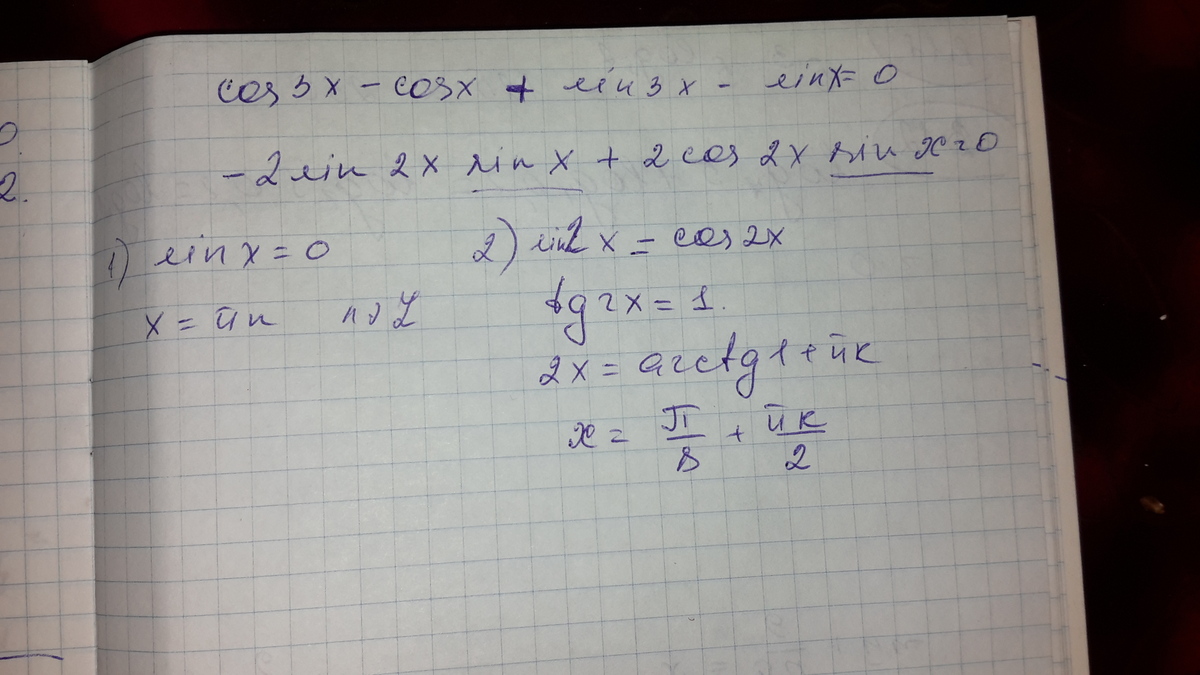 0.
2.
cos 3x - cosx + sin 3x - sinx = 0
-2 sin 2x sin x + 2 cos 2x sin x = 0
1) sin x = 0
x = πn n ∈ Z
2) sin 2x = cos 2x
tg 2x = 1.
2x = arctg 1 + πк
x = π/8 + πк/2